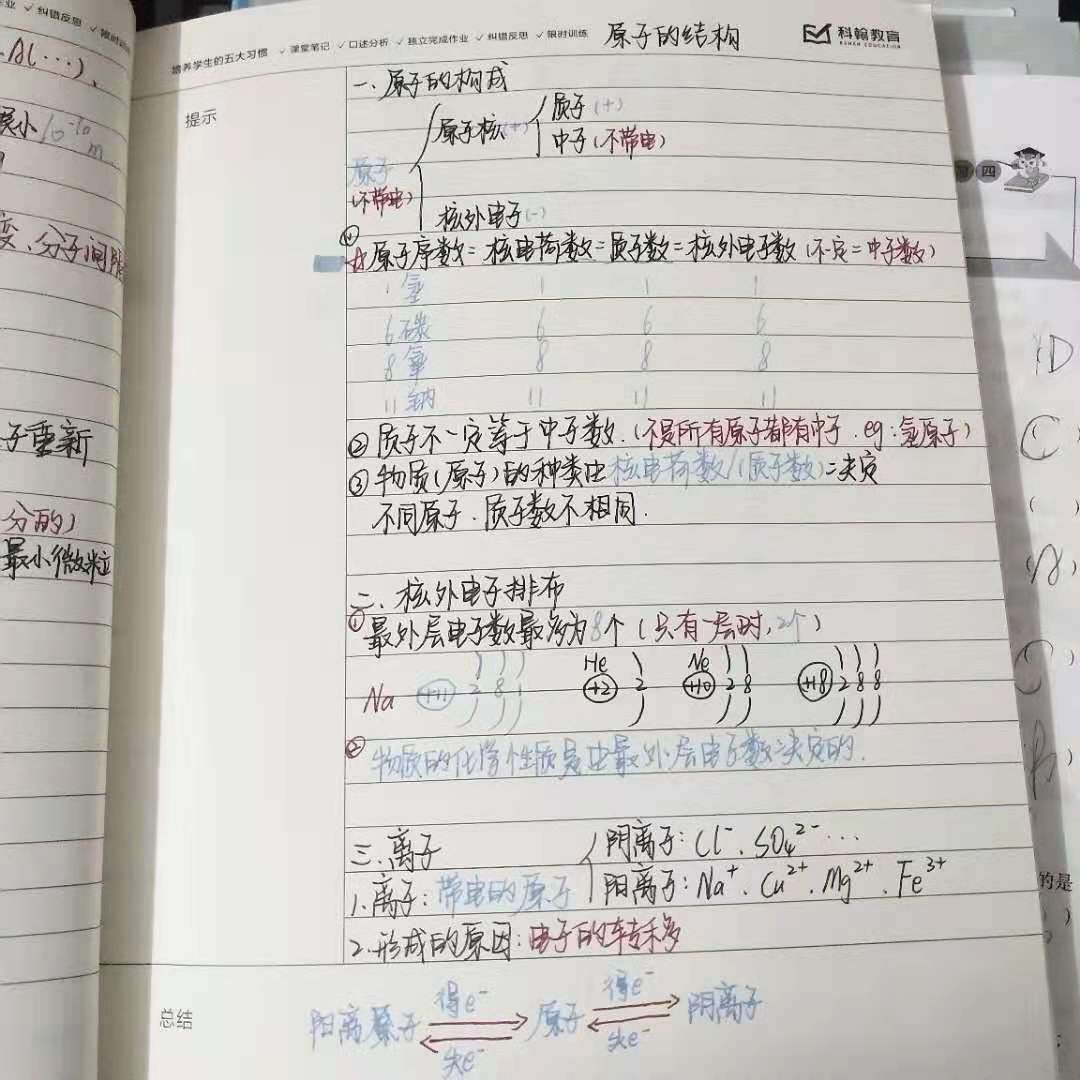 业 ✓ 纠错反思 ✓ 限时训练
Al(···)、
最小10⁻¹⁰m
变、分子间隙
子重新
分的)
最小微粒
培养学生的五大习惯 ✓ 课堂笔记 ✓ 口述分析 ✓ 独立完成作业 ✓ 纠错反思 ✓ 限时训练
原子的结构
科翰教育
KEHAN EDUCATION
提示
一、原子的构成
原子 (不带电)
原子核(+)
质子(+)
中子(不带电)
核外电子(-)
① ☆原子序数=核电荷数=质子数=核外电子数(不一定=中子数)
1 氢 1 1 1
6 碳 6 6 6
8 氧 8 8 8
11 钠 11 11 11
②质子不一定等于中子数.(不是所有原子都有中子.eg:氢原子)
③物质(原子)的种类由核电荷数/(质子数)决定
不同原子.质子数不相同.
二、核外电子排布
①最外层电子数最多为8个(只有一层时,2个)
Na +11 2 8 1
He +2 2
Ne +10 2 8
+18 2 8 8
②物质的化学性质是由最外层电子数决定的.
三、离子
阴离子:Cl⁻.SO₄²⁻···
1.离子:带电的原子
阳离子:Na⁺.Cu²⁺.Mg²⁺.Fe³⁺
2.形成的原因:电子的转移
总结
阳离子 得e⁻ 失e⁻ 原子 得e⁻ 失e⁻ 阴离子
四
D
C
A
B
的是